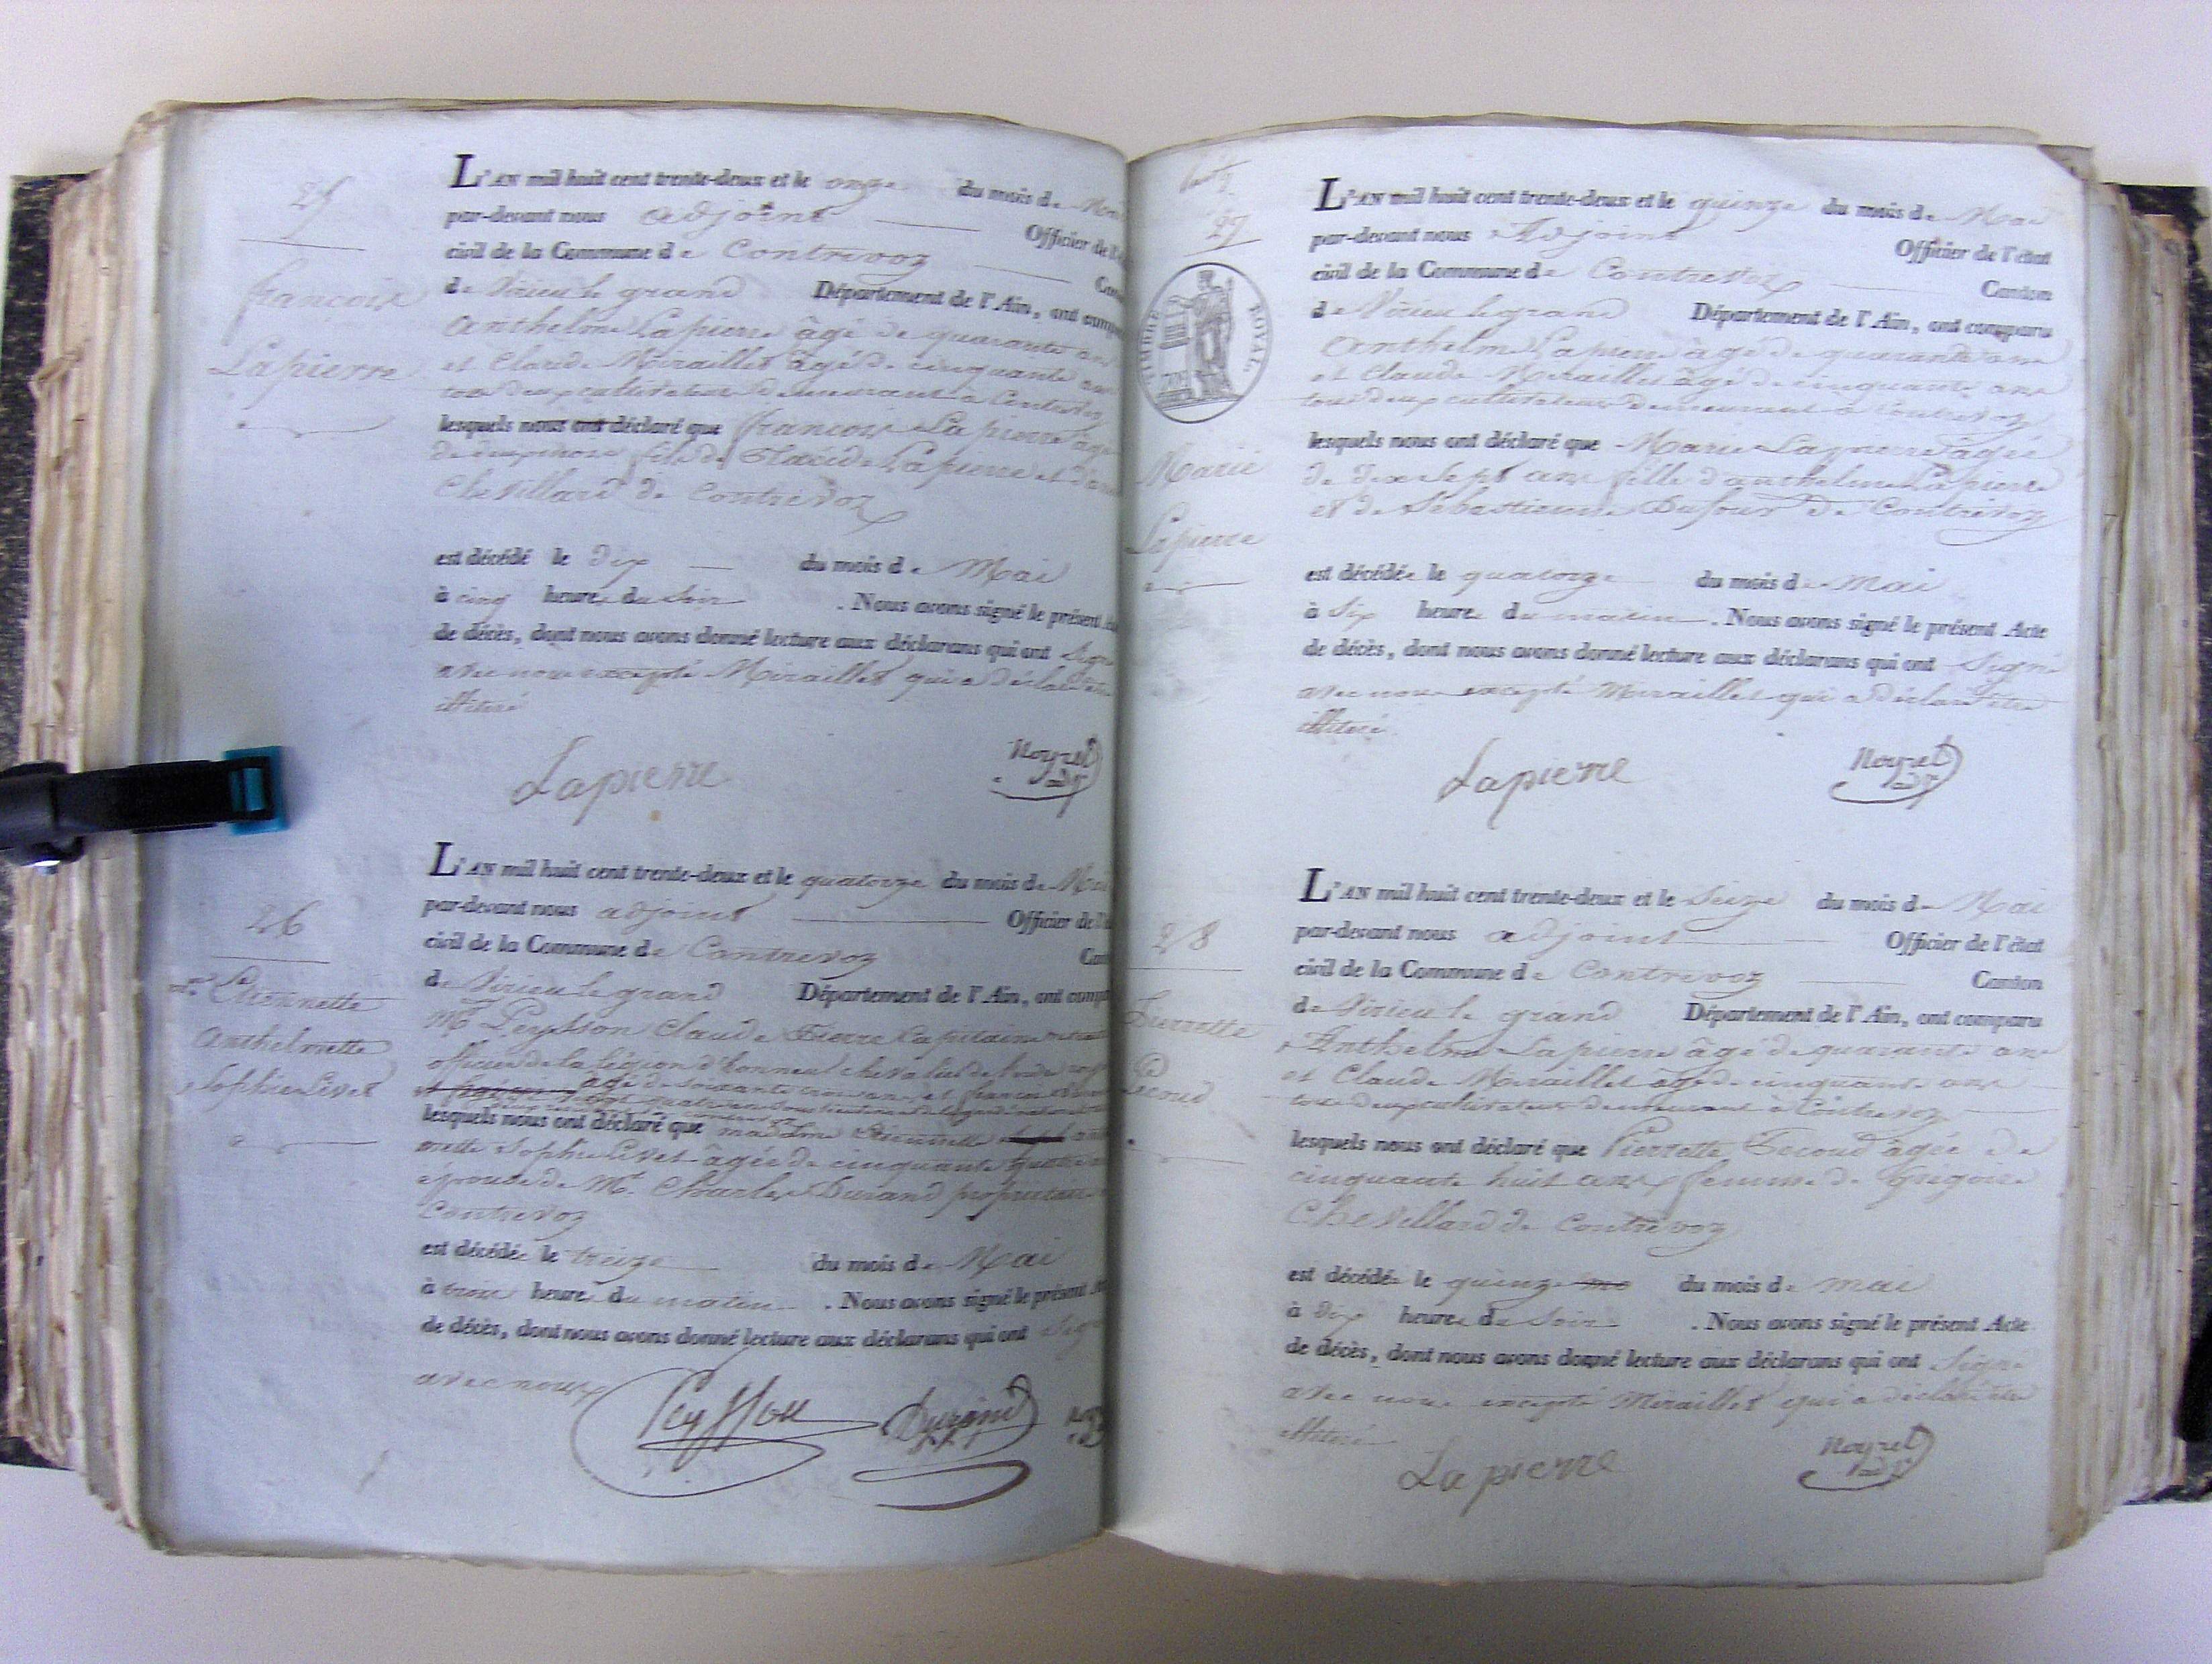 25
francois
Lapierre
L'AN mil huit cent trente-deux et le onze du mois de Mai
par-devant nous adjoint Officier de l'
civil de la Commune de Contrevoz
de Virieu le grand Département de l'Ain, ont
Anthelme Lapierre âgé de quarante
et Claude Miraillet âgé de cinquante
tous deux cultivateurs demeurant à Contrevoz
lesquels nous ont déclaré que francois Lapierre
de deux mois fils de Lapierre et
Chevillard de Contrevoz
est décédé le dix du mois de Mai
à cinq heures du Soir . Nous avons signé le présent
de décès, dont nous avons donné lecture aux déclarans qui ont signé
avec nous excepté Miraillet qui a déclaré
illitéré
Lapierre Noyret adj
26
Etiennette
Anthelmette
Sophie Livet
L'AN mil huit cent trente-deux et le quatorze du mois de Mai
par-devant nous adjoint Officier de l'
civil de la Commune de Contrevoz
de Virieu le grand Département de l'Ain, ont
Mr Peysson Claude Pierre Capitaine
officier de la Légion d'honneur chevalier de
âgé de soixante trois ans et francois
lesquels nous ont déclaré que madame Etiennette
Sophie Livet âgée de cinquante quatre
épouse de Mr. Charles Durand propriétaire
Contrevoz
est décédée le treize du mois de Mai
à trois heures du matin . Nous avons signé le présent
de décès, dont nous avons donné lecture aux déclarans qui ont signé
avec nous
Peysson Durand
27
TIMBRE ROYAL
Marie
Lapierre
L'AN mil huit cent trente-deux et le quinze du mois de Mai
par-devant nous Adjoint Officier de l'état
civil de la Commune de Contrevoz Canton
de Virieu le grand Département de l'Ain, ont comparu
Anthelme Lapierre âgé de quarante ans
et Claude Miraillet âgé de cinquante ans
tous deux cultivateurs demeurant à Contrevoz
lesquels nous ont déclaré que Marie Lapierre âgée
de dix sept ans fille d'anthelme Lapierre
et de Sébastienne Dufour de Contrevoz
est décédée le quatorze du mois de Mai
à Six heures du matin . Nous avons signé le présent Acte
de décès, dont nous avons donné lecture aux déclarans qui ont Signé
avec nous excepté Miraillet qui a déclaré être
illitéré
Lapierre Noyret adj
28
Pierrette
L'AN mil huit cent trente-deux et le Seize du mois de Mai
par-devant nous adjoint Officier de l'état
civil de la Commune de Contrevoz Canton
de Virieu le grand Département de l'Ain, ont comparu
Anthelme Lapierre âgé de quarante ans
et Claude Miraillet âgé de cinquante ans
tous deux cultivateurs demeurant à Contrevoz
lesquels nous ont déclaré que Pierrette âgée de
cinquante huit ans femme de Grégoire
Chevillard de Contrevoz
est décédée le quinze du mois de mai
à dix heures du Soir . Nous avons signé le présent Acte
de décès, dont nous avons donné lecture aux déclarans qui ont Signé
avec nous excepté Miraillet qui a déclaré être
illitéré
Lapierre Noyret adj